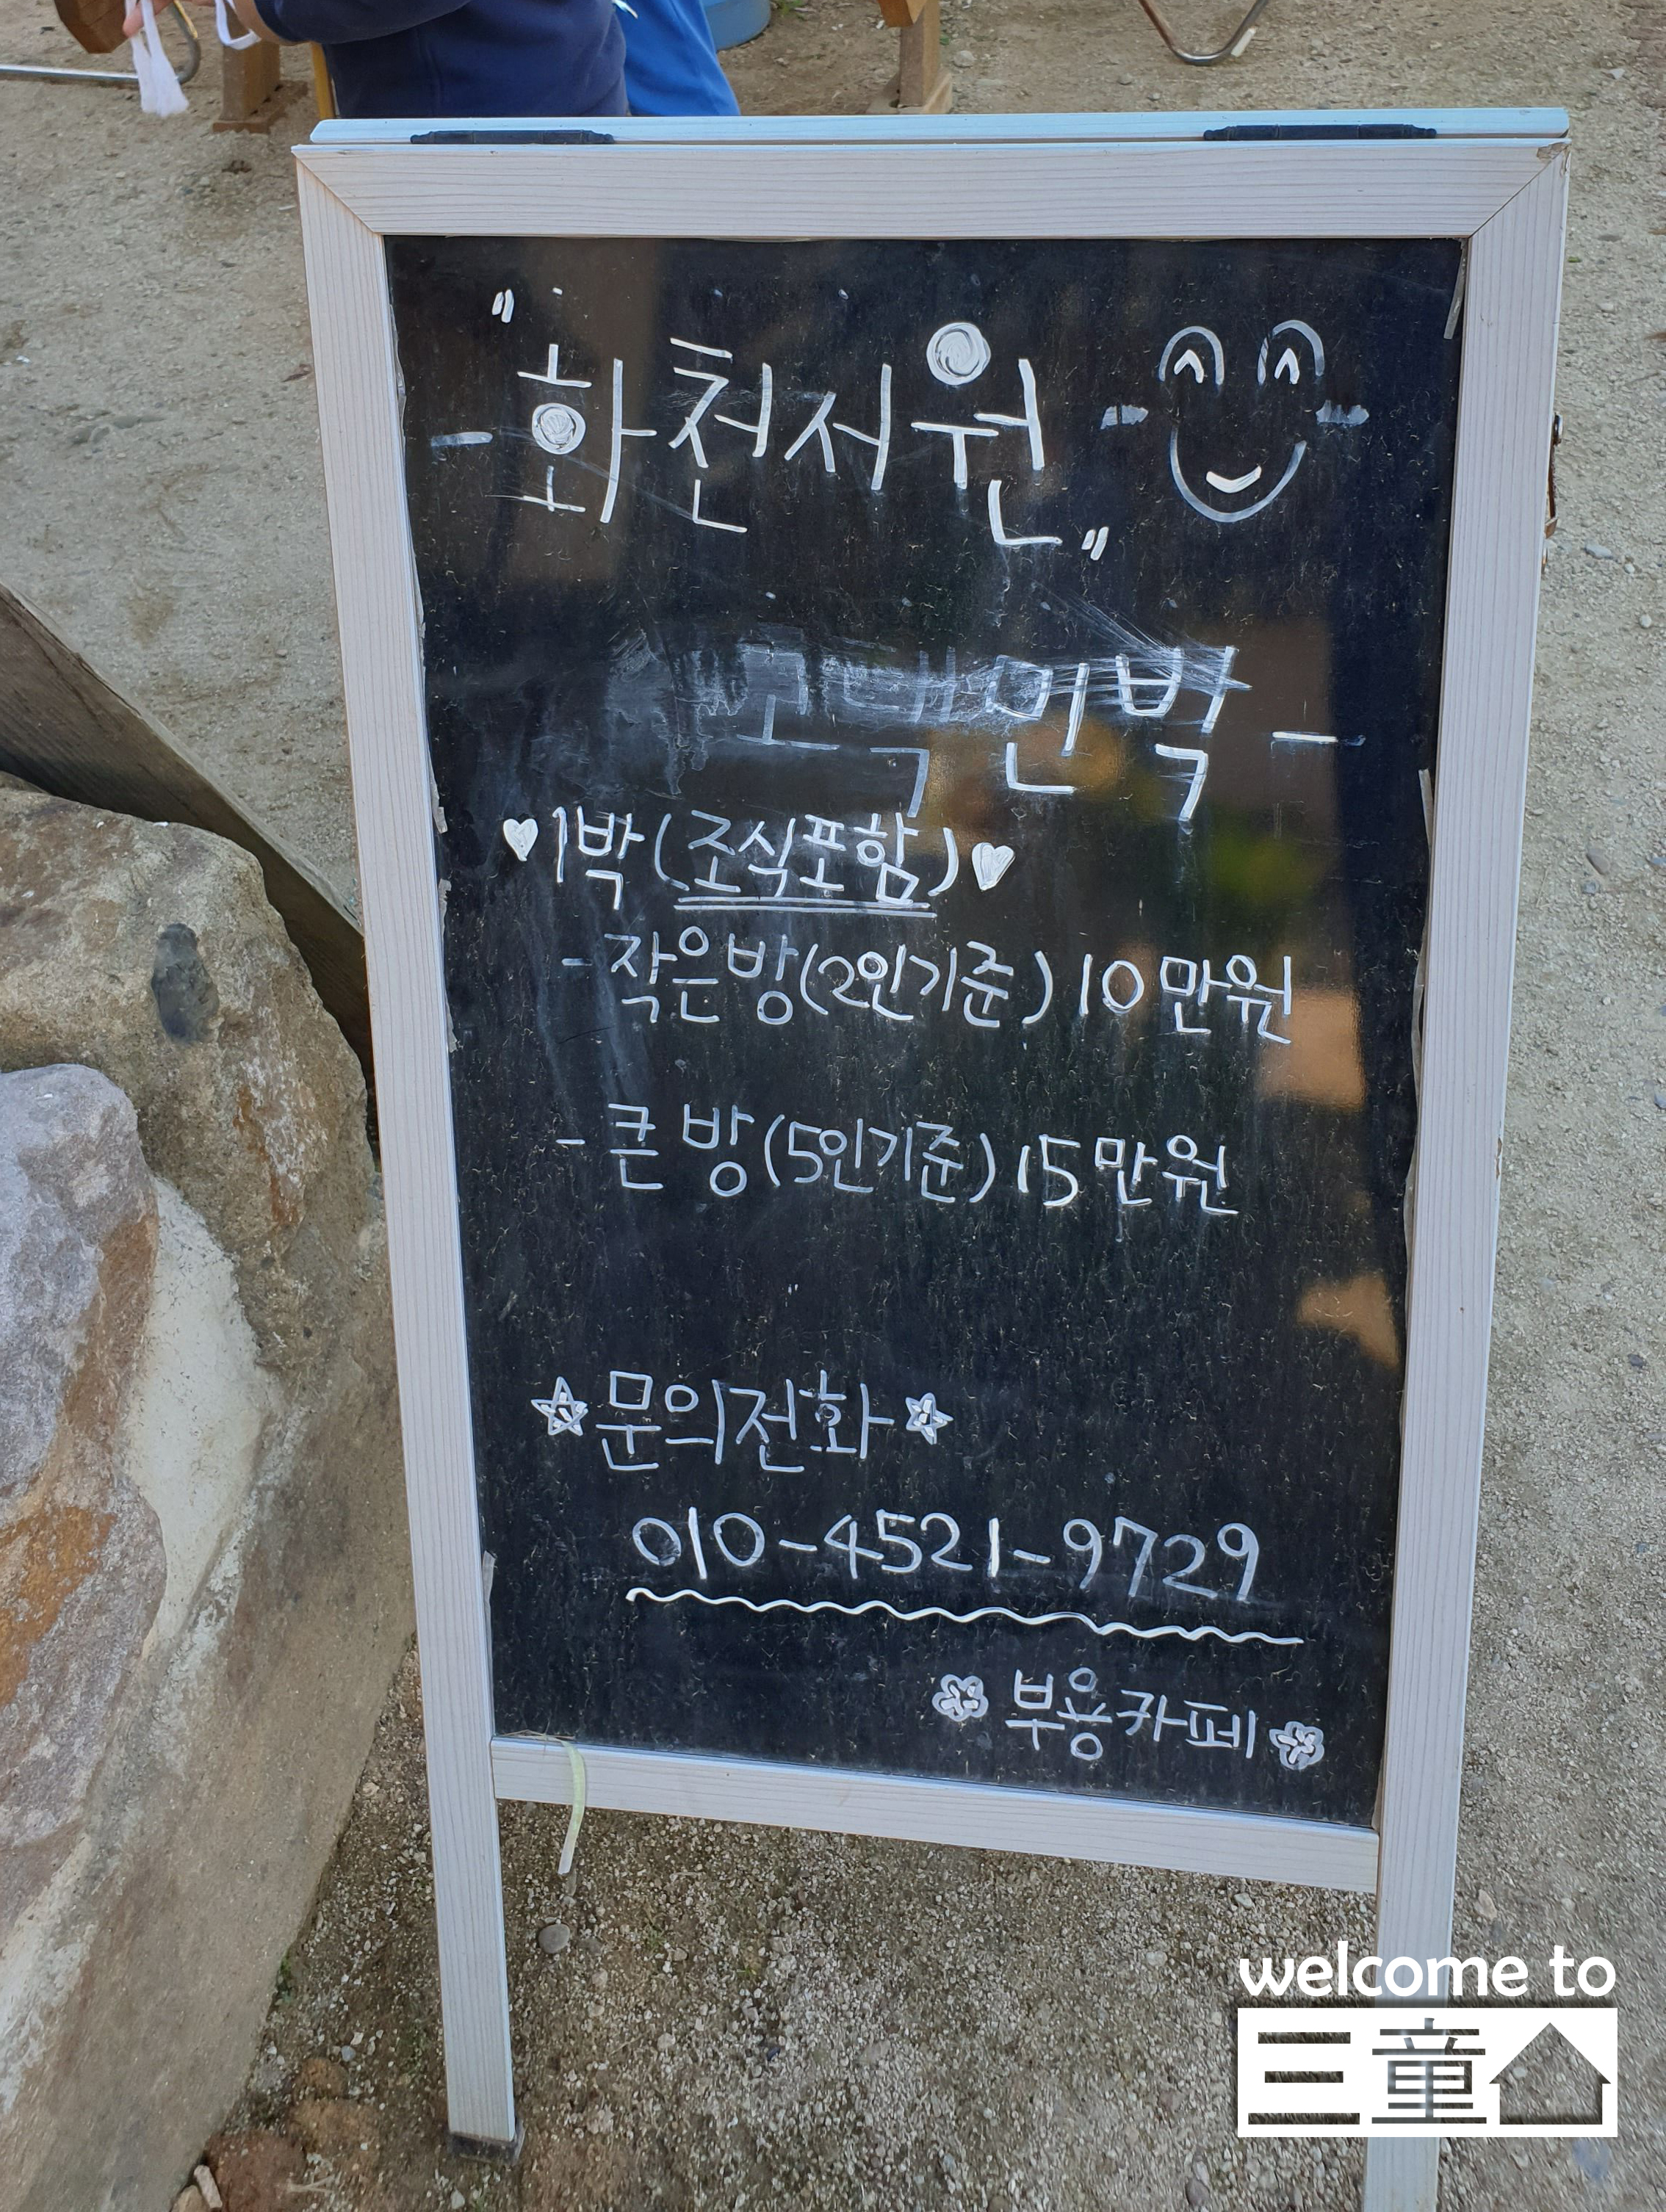 "화천서원"
- 고택민박 -
♥1박(조식포함)♥
- 작은방(2인기준) 10만원
- 큰방(5인기준) 15만원
☆문의전화☆
010-4521-9729
부용카페
welcome to
三童